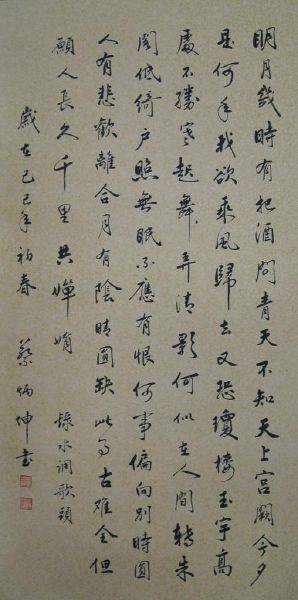 明月几時有把酒問青天不知天上宮闕今夕
是何年我欲乘風歸去又恐瓊樓玉宇高
處不勝寒起舞弄清影何似在人間轉朱
閣低綺戶照無眠不應有恨何事偏向別時圓
人有悲歡離合月有陰晴圓缺此事古難全但
願人長久千里共嬋娟 錄水调歌頭
歲在己巳年初春 蔡炳坤書